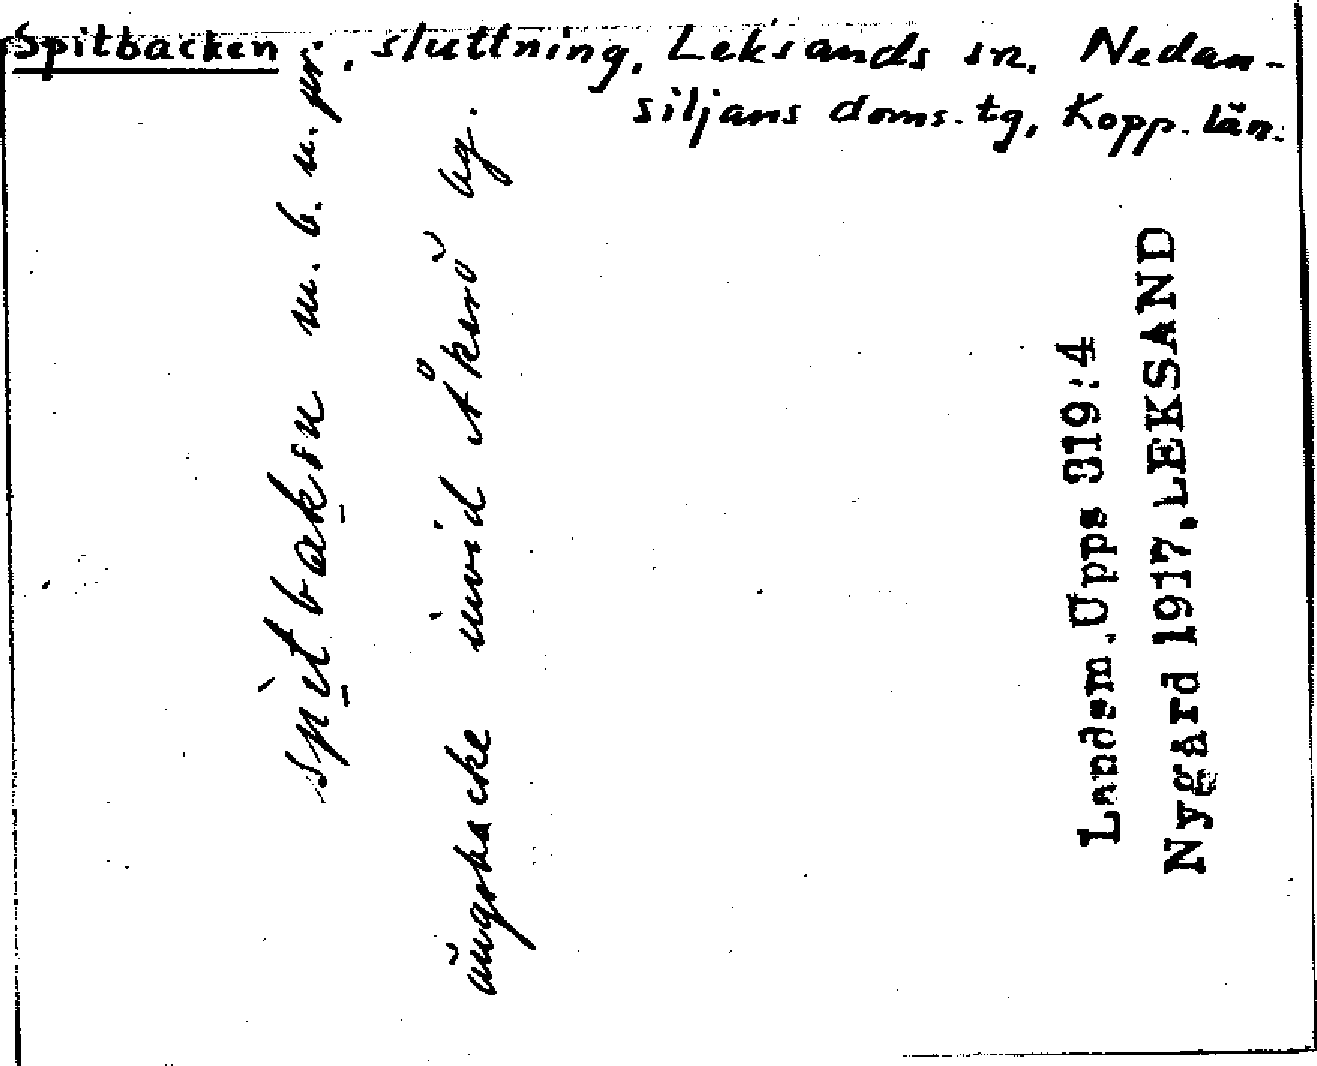 Spitbacken, sluttning, Leksands sn. Nedan-
siljans doms. tg, Kopp. län.
spìtbakən m. b. u. pr.
ängsbacke invid Åkerö by.
Landsm. Upps 319:4
Nygård 1917, LEKSAND